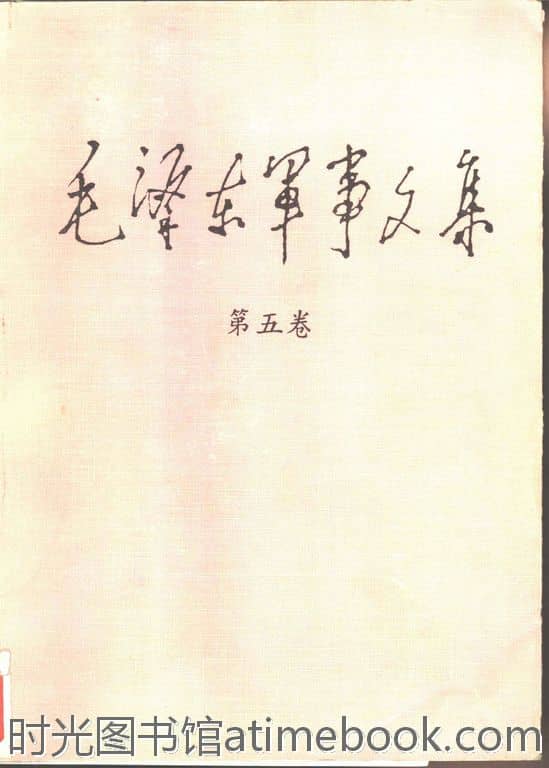 毛泽东军事文集
第五卷
时光图书馆atimebook.com